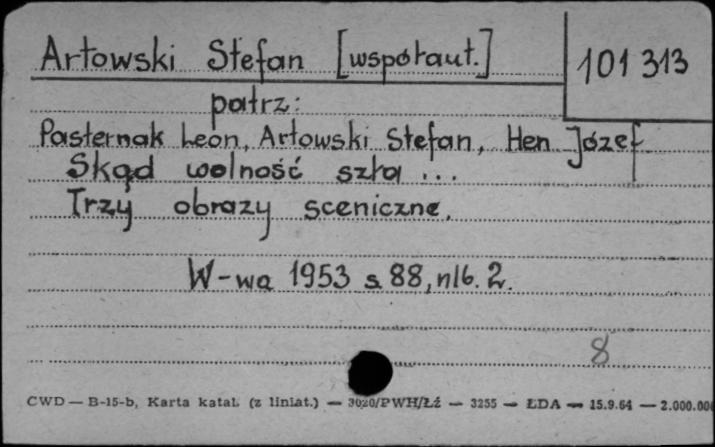 Artowski Stefan [współaut.]
101 313
patrz:
Pasternak Leon, Artowski Stefan, Hen Józef
Skąd wolność szła ...
Trzy obrazy sceniczne.
W-wa 1953 s. 88, nlb. 2.
8
CWD — B-15-b, Karta katal. (z liniat.) — 3020/PWH/Łź — 3255 — ŁDA — 15.9.64 — 2.000.000